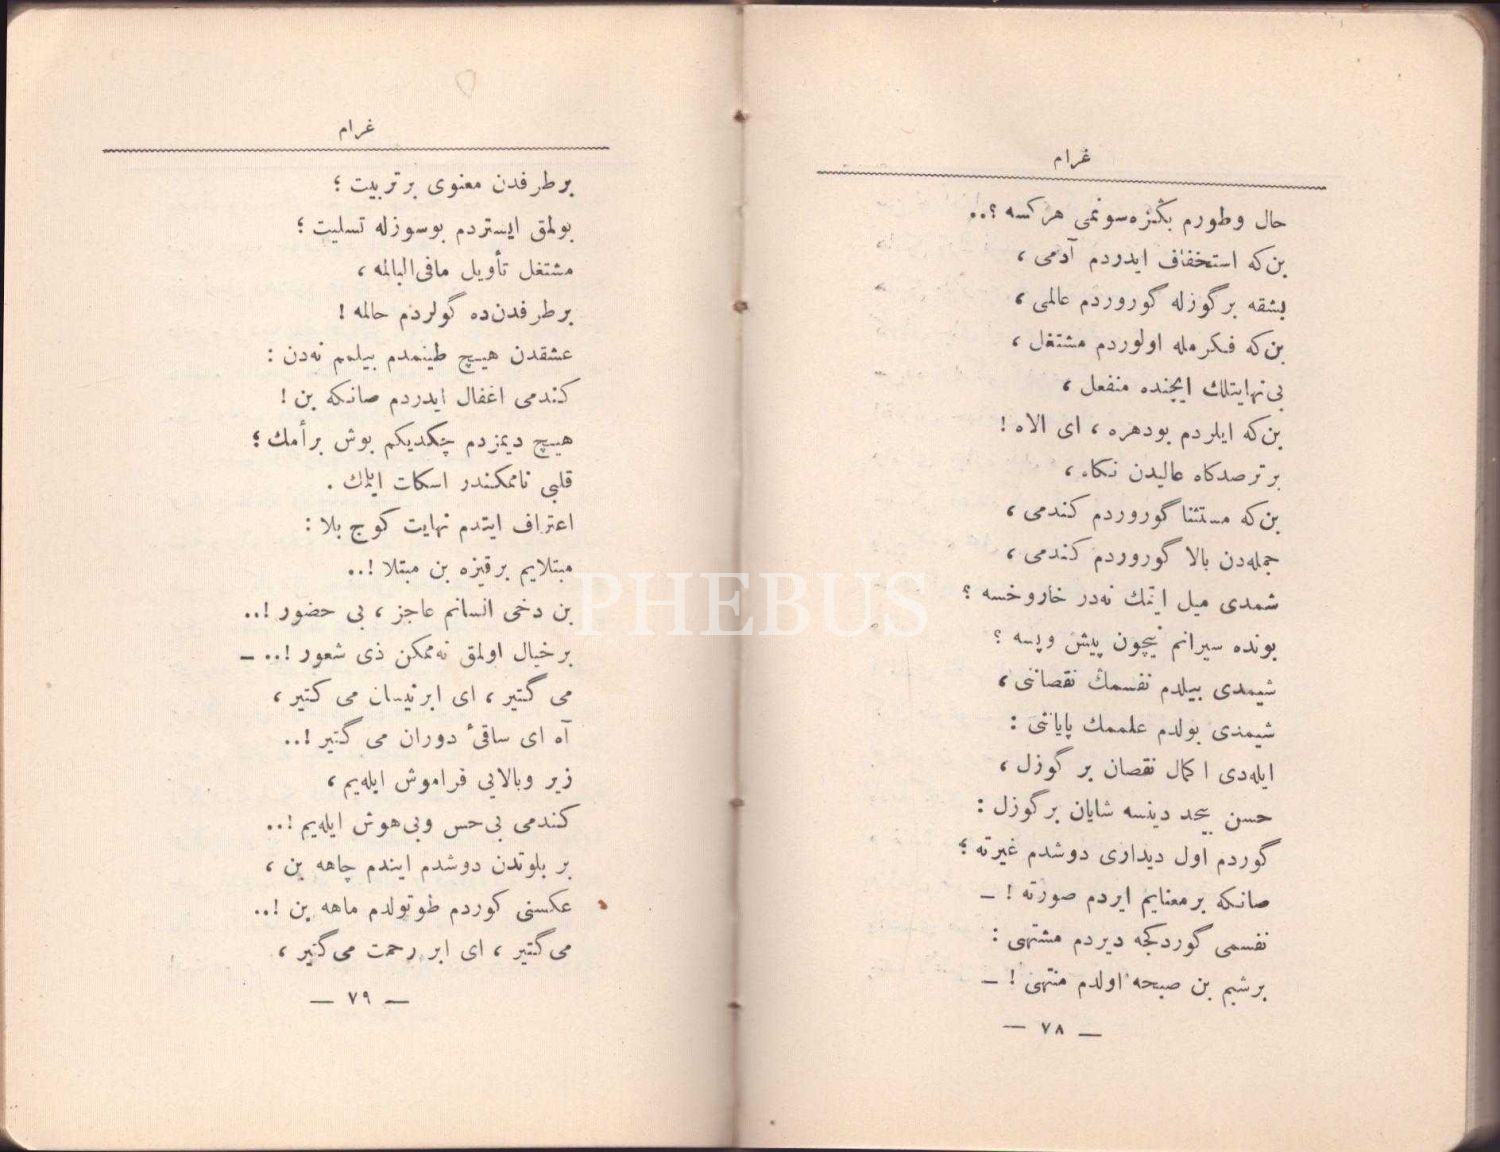 غرام
حال وطورم بكزه‌سونمی هركسه ؟..
بن‌كه استخفاف ایدردم آدمی ،
بشقه برگوزله گوروردم عالمی ،
بن‌كه فكرمله اولوردم مشتغل ،
بی‌نهایتلك ایچنده منفعل ،
بن‌كه ایلردم بودهره ، ای الاه !
بر ترصدكاه عالیدن نكاه ،
بن‌كه مستثنا گوروردم كندمی ،
جمله‌دن بالا گوروردم كندمی ،
شمدی میل ایتمك نه‌در خاروخسه ؟
بونده سیرانم نیچون پیش وپسه ؟
شیمدی بیلدم نفسمك نقصاننی ،
شیمدی بولدم علممك پایاننی :
ایله‌دی اكمال نقصان بر گوزل ،
حسن بیحد دینسه شایان برگوزل :
گوردم اول دیداری دوشدم غیرته ؛
صانكه برمعنایم ایردم صورته ! ـ
نفسمی گوردكجه دیردم مشتهی :
برشبم بن صبحه اولدم منتهی ! ـ
— ٧٨ —
غرام
برطرفدن معنوی برتربیت ؛
بولمق ایستردم بوسوزله تسلیت ؛
مشتغل تأویل مافی‌البالمله ،
برطرفدن‌ده گولردم حالمه !
عشقدن هیچ طینمدم بیلمم نه‌دن :
كندمی اغفال ایدردم صانكه بن !
هیچ دیمزدم چكدیكم بوش برأمك ؛
قلبی ناممكندر اسكات ایله‌مك .
اعتراف ایتدم نهایت كوج بلا :
مبتلایم برقیزه بن مبتلا !..
بن دخی انسانم عاجز ، بی حضور !..
برخیال اولمق نه‌ممكن ذی شعور !.. ـ
می گتیر ، ای ابر نیسان می كتیر ،
آه ای ساقیٔ دوران می گتیر !..
زیر وبالایی فراموش ایله‌یم ،
كندمی بی‌حس وبی‌هوش ایله‌یم !..
بر بلوتدن دوشدم ایندم چاهه بن ،
عكسنی كوردم طوتولدم ماهه بن !..
می‌گتیر ، ای ابر رحمت می‌گتیر ،
— ٧٩ —
PHEBUS